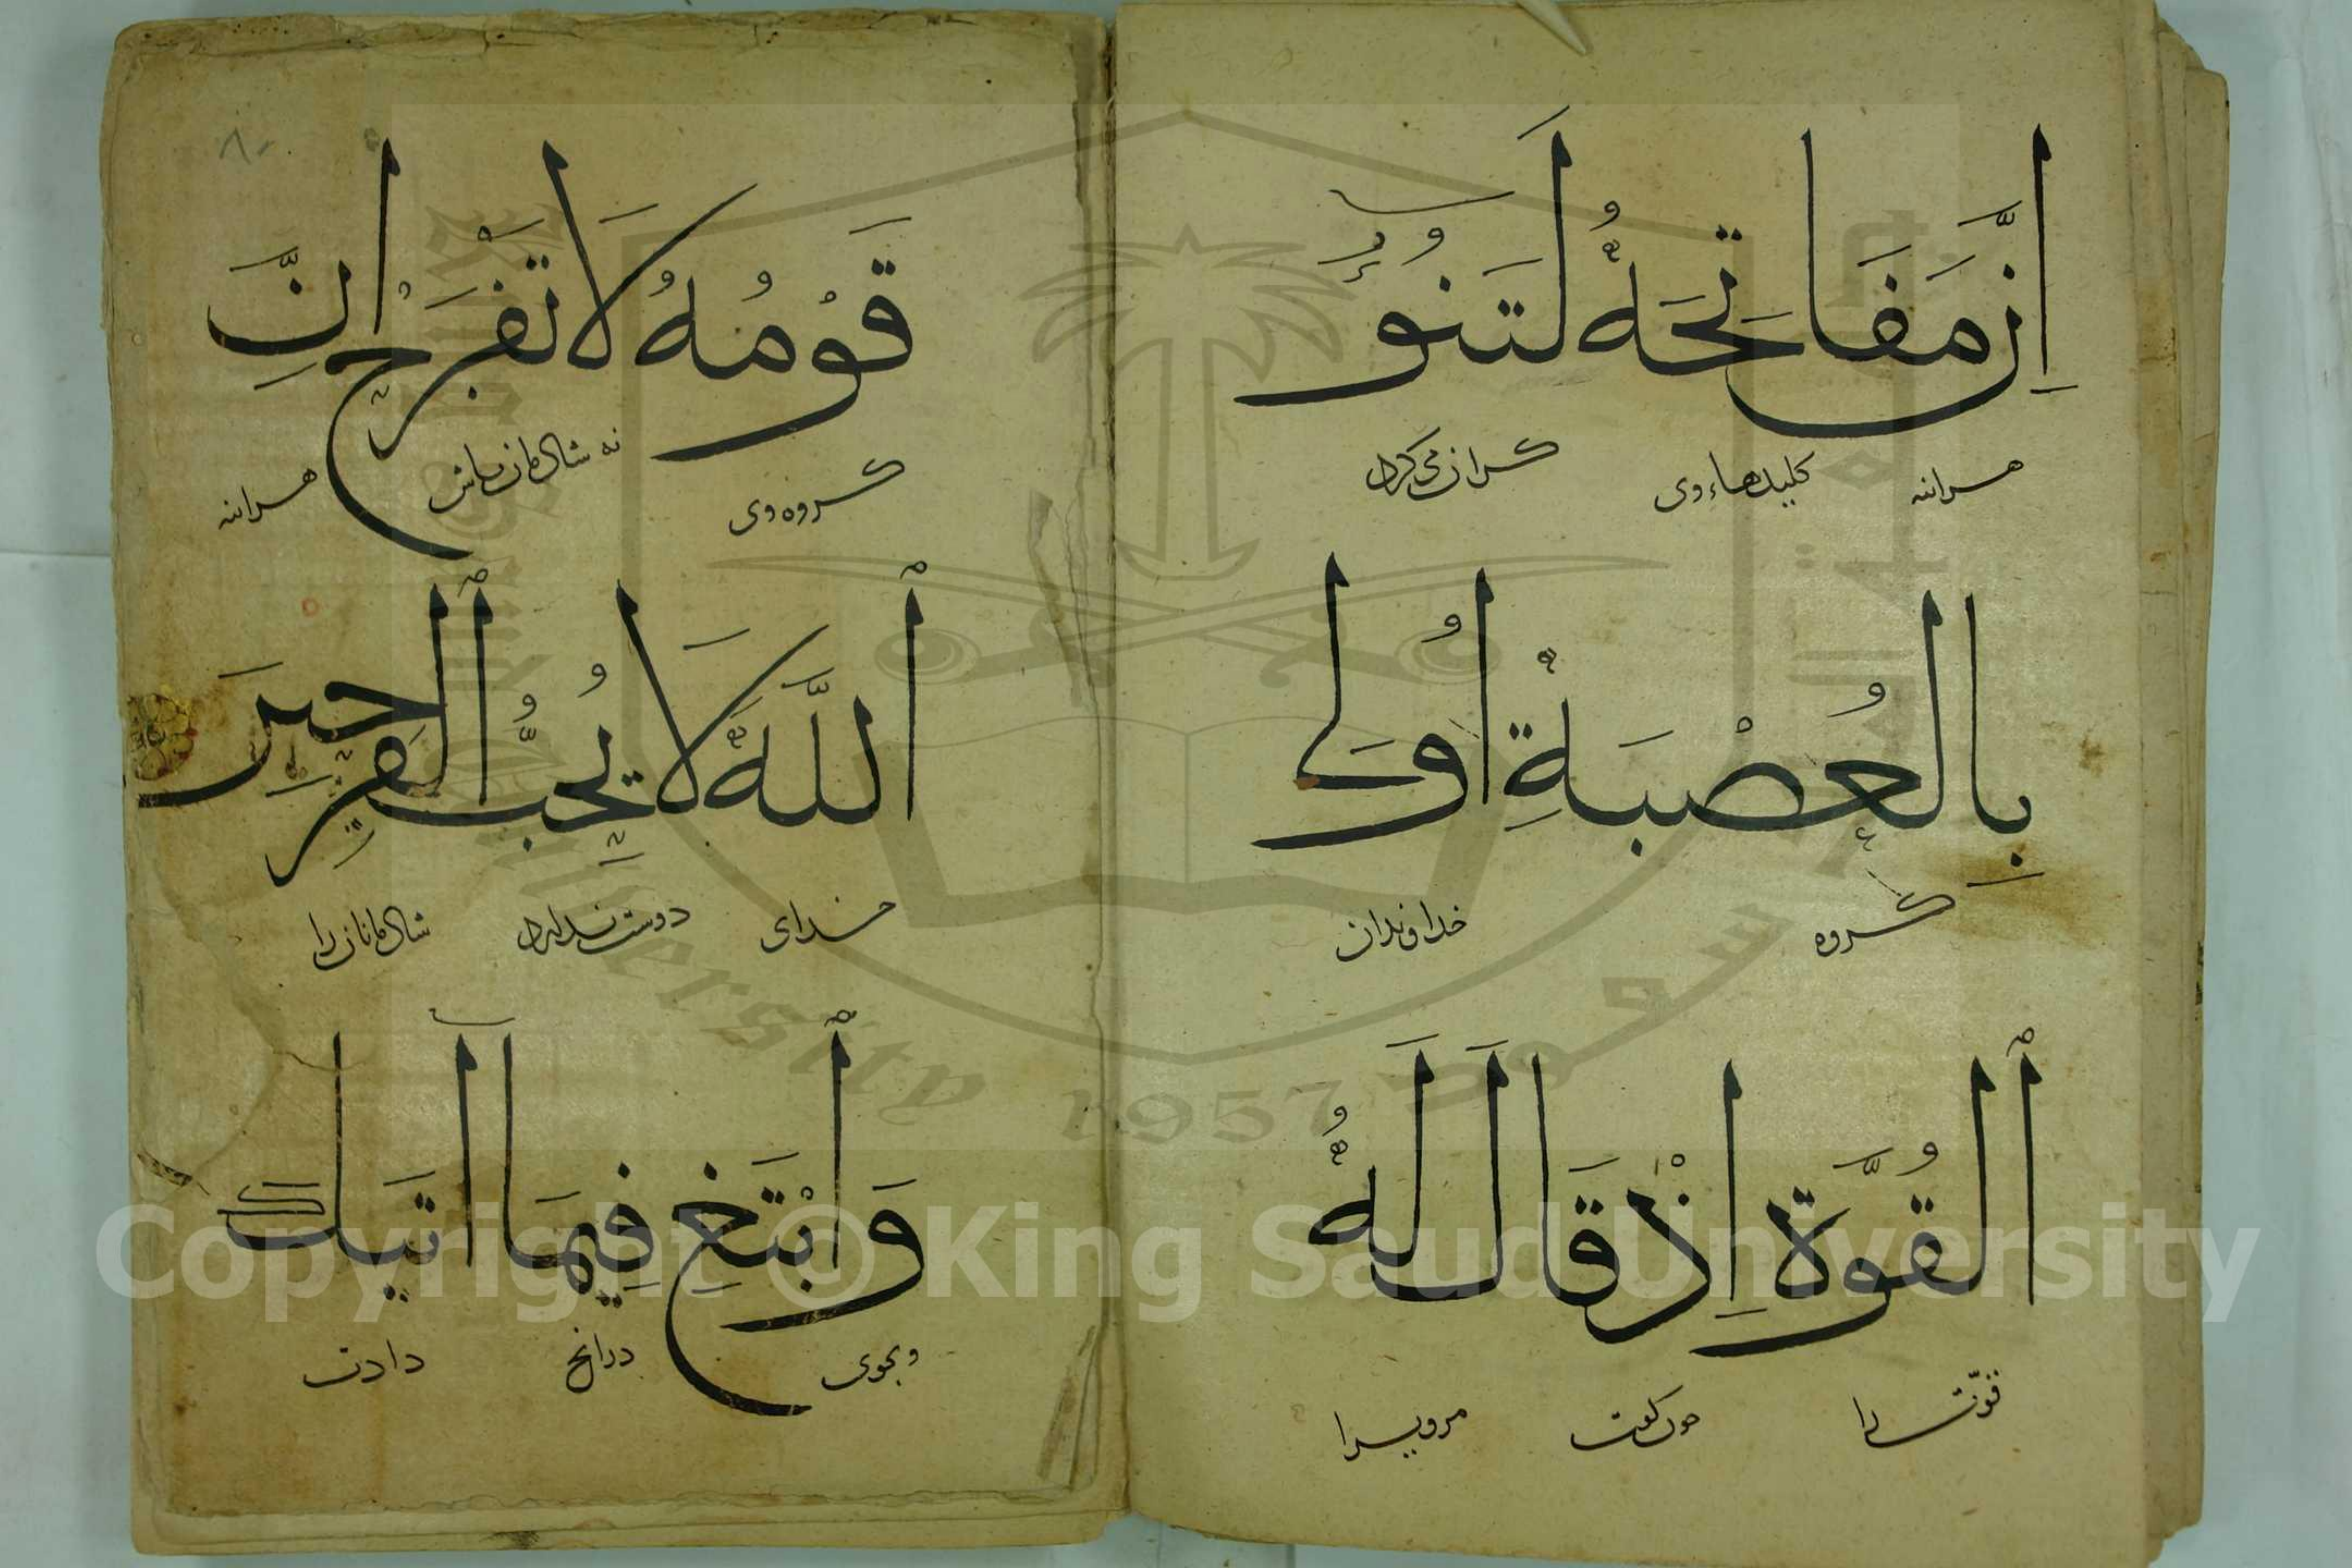 اِنَّ مَفَاتِحَهُ لَتَنُوٓءُ
هراینه کلیدهاء وی گران می کرد
بِالْعُصْبَةِ اُولِی
گروه خداوندان
ٱلْقُوَّةِ اِذْ قَالَ لَهُ
قوّت را چون گفت مرویرا
قَوْمُهُ لَا تَفْرَحْ اِنَّ
گروه وی نه شادمان مباش هراینه
ٱللَّهَ لَا يُحِبُّ ٱلْفَرِحِينَ
خدای دوست ندارد شادمانان را
وَٱبْتَغِ فِيمَآ اتَيكَ
و بجوی درانچ دادت
Copyright © King Saud University
1957